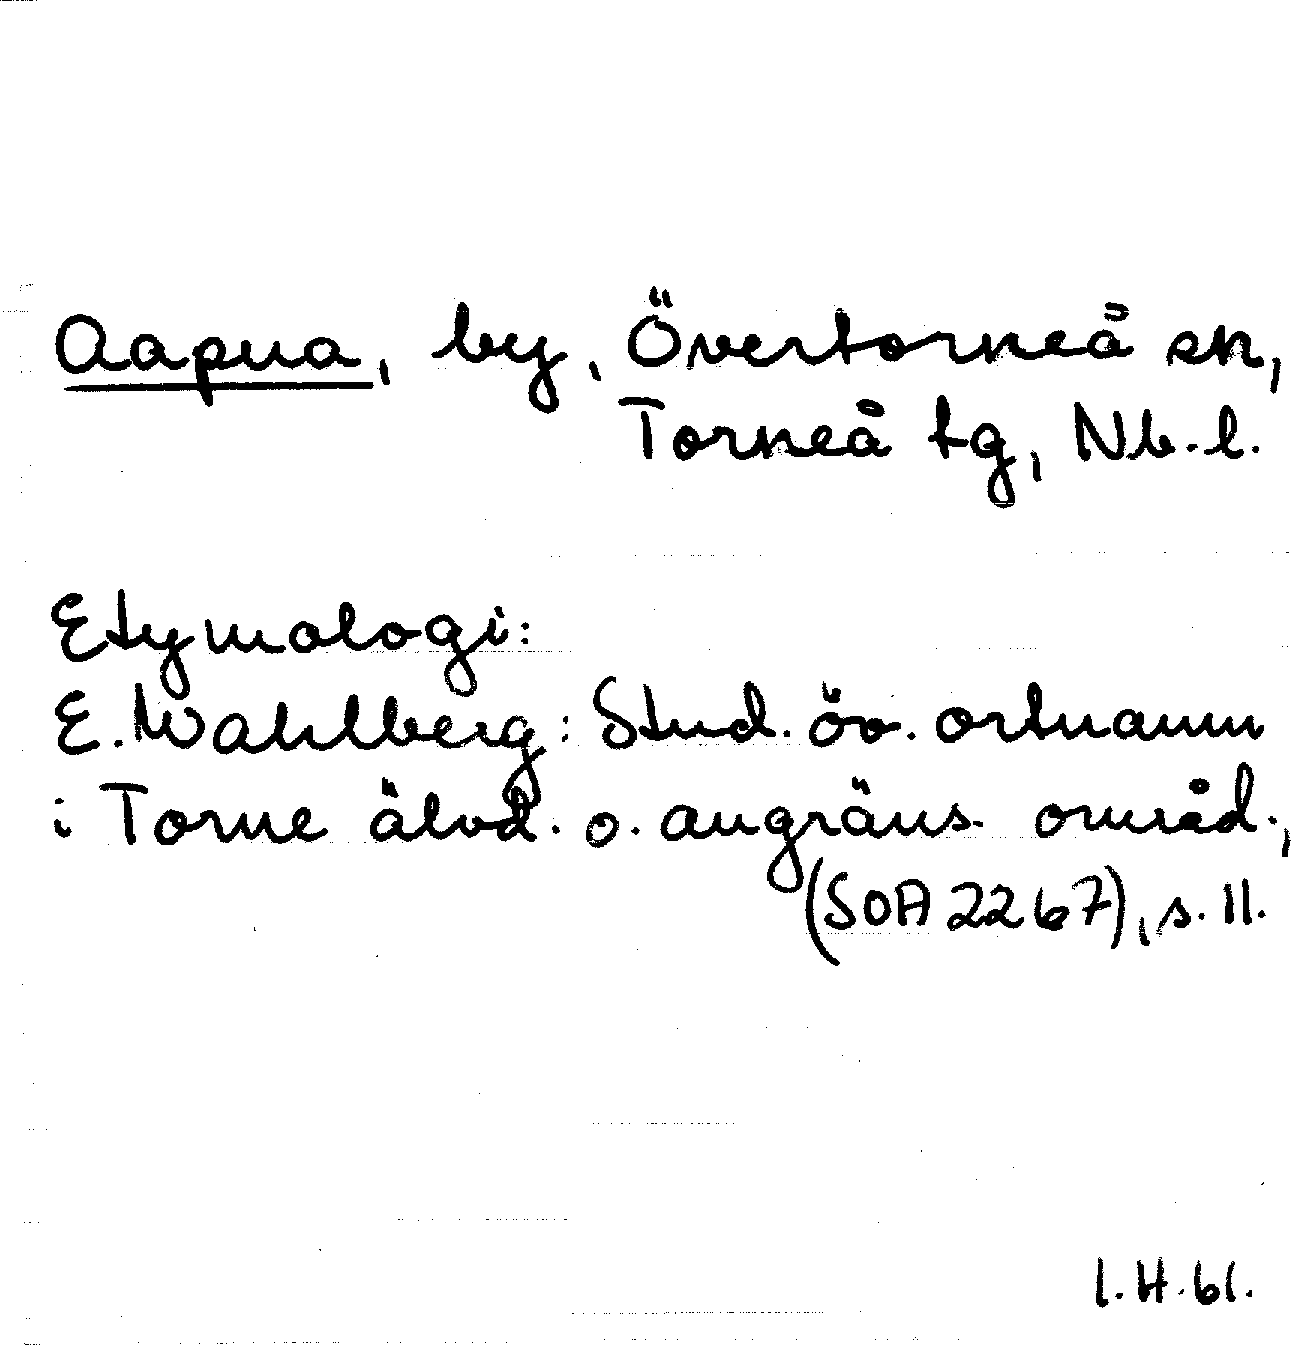 Aapua, by, Övertorneå sn,
Torneå tg, Nb.l.
Etymologi:
E. Wahlberg: Stud. öv. ortnamn
i Torne älvd. o. angräns. områd.,
(SOA 2267), s. 11.
I.H.61.